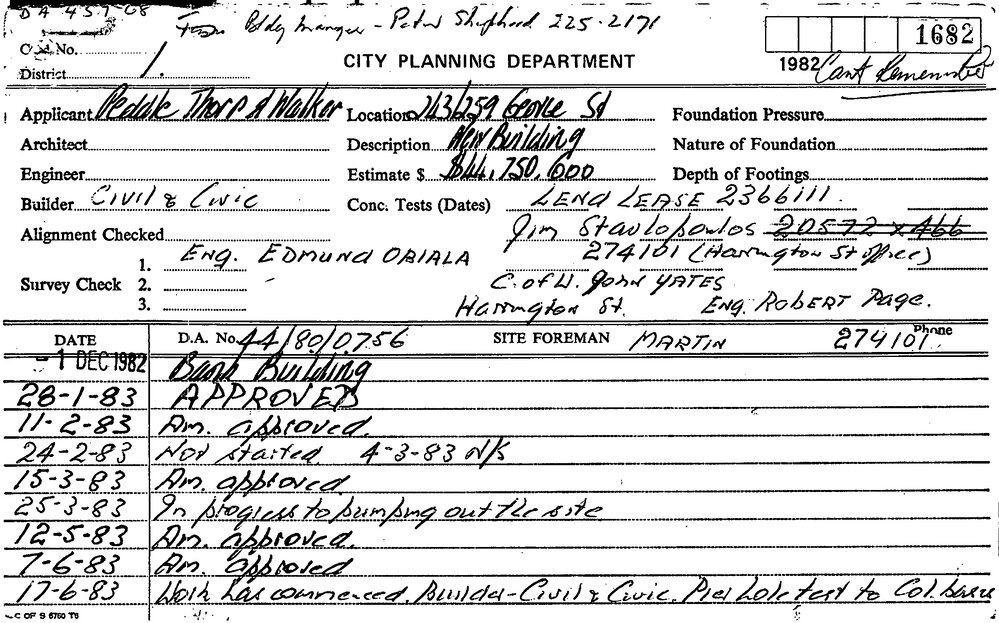 DA 457/08
From Bldg Manager - Peter Shepherd 225-2171
1682
Card No.
CITY PLANNING DEPARTMENT
1982 Cant Remember
District 1.
Applicant Peddle Thorp & Walker Location 243/259 George St Foundation Pressure
Architect Description New Building Nature of Foundation
Engineer Estimate $ $44,750,000 Depth of Footings
Builder Civil & Civic Conc. Tests (Dates) LEND LEASE 2366111.
Alignment Checked Jim Stavlopoulos 20572 x 466
1. Eng. EDMUND OBIALA 274101 (Harrington St Office)
Survey Check 2. C. of W. John YATES
3. Harrington St. Eng. ROBERT Page.
DATE D.A. No. 44/80/0756 SITE FOREMAN MARTIN Phone 274101.
-1 DEC 1982 Bank Building
28-1-83 APPROVED
11-2-83 Am. approved.
24-2-83 Not started. 4-3-83 N/S
15-3-83 Am. approved
25-3-83 In progress to pumping out the site
12-5-83 Am. approved.
7-6-83 Am. approved
17-6-83 Work has commenced. Builder-Civil & Civic. Pier hole test to Col. bases
C OF S 6760 T6